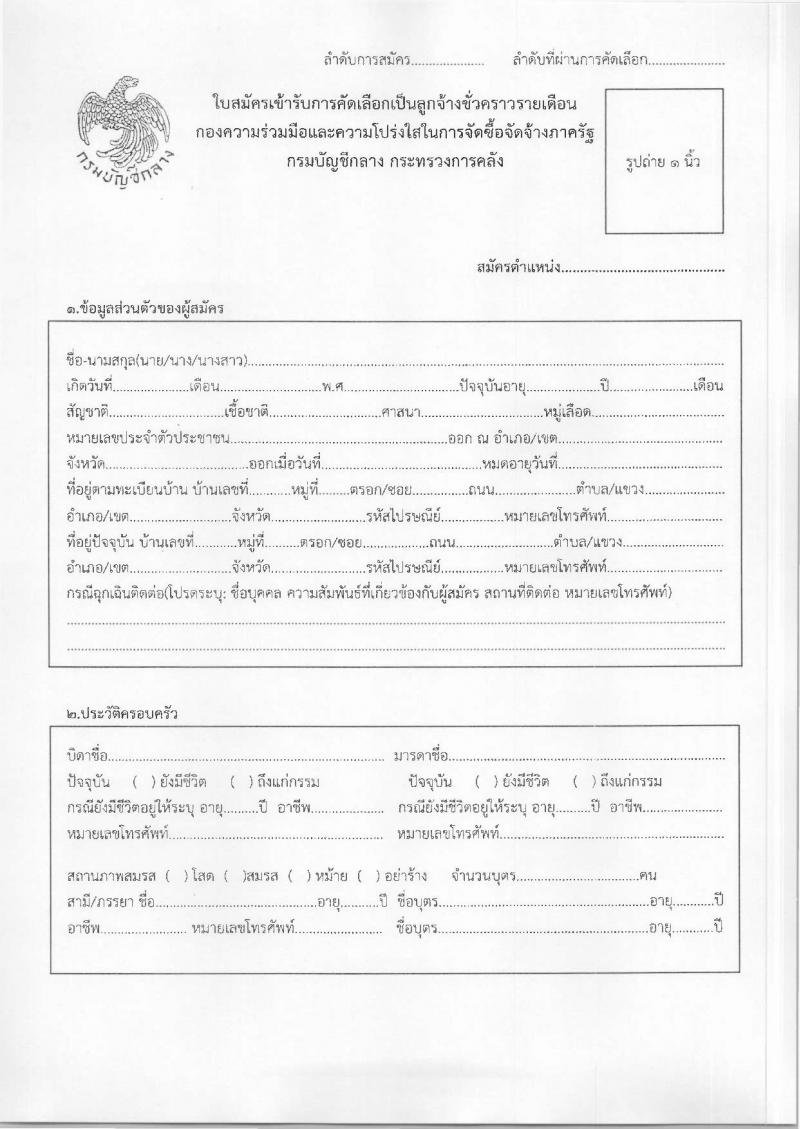 ลำดับการสมัคร..................... ลำดับที่ผ่านการคัดเลือก......................
กรมบัญชีกลาง
ใบสมัครเข้ารับการคัดเลือกเป็นลูกจ้างชั่วคราวรายเดือน
กองความร่วมมือและความโปร่งใสในการจัดซื้อจัดจ้างภาครัฐ
กรมบัญชีกลาง กระทรวงการคลัง
รูปถ่าย ๑ นิ้ว
สมัครตำแหน่ง............................................
๑.ข้อมูลส่วนตัวของผู้สมัคร
ชื่อ-นามสกุล(นาย/นาง/นางสาว)................................................................
เกิดวันที่......................เดือน............................พ.ศ................................ปัจจุบันอายุ.....................ปี........................เดือน
สัญชาติ................................เชื้อชาติ...............................ศาสนา...................................หมู่เลือด.....................................
หมายเลขประจำตัวประชาชน..............................................................ออก ณ อำเภอ/เขต..............................................
จังหวัด........................................ออกเมื่อวันที่.............................................หมดอายุวันที่..............................................
ที่อยู่ตามทะเบียนบ้าน บ้านเลขที่............หมู่ที่.........ตรอก/ซอย................ถนน..............................ตำบล/แขวง......................
อำเภอ/เขต............................จังหวัด...........................รหัสไปรษณีย์..................หมายเลขโทรศัพท์................................
ที่อยู่ปัจจุบัน บ้านเลขที่............หมู่ที่..........ตรอก/ซอย...................ถนน...................................ตำบล/แขวง............................
อำเภอ/เขต............................จังหวัด...........................รหัสไปรษณีย์..................หมายเลขโทรศัพท์................................
กรณีฉุกเฉินติดต่อ(โปรดระบุ: ชื่อบุคคล ความสัมพันธ์ที่เกี่ยวข้องกับผู้สมัคร สถานที่ติดต่อ หมายเลขโทรศัพท์)
................................................................
................................................................
๒.ประวัติครอบครัว
บิดาชื่อ............................................................ มารดาชื่อ............................................................
ปัจจุบัน ( ) ยังมีชีวิต ( ) ถึงแก่กรรม ปัจจุบัน ( ) ยังมีชีวิต ( ) ถึงแก่กรรม
กรณียังมีชีวิตอยู่ให้ระบุ อายุ..........ปี อาชีพ.................... กรณียังมีชีวิตอยู่ให้ระบุ อายุ..........ปี อาชีพ......................
หมายเลขโทรศัพท์............................................................ หมายเลขโทรศัพท์............................................................
สถานภาพสมรส ( ) โสด ( )สมรส ( ) หม้าย ( ) อย่าร้าง จำนวนบุตร..................................คน
สามี/ภรรยา ชื่อ.............................................อายุ...........ปี ชื่อบุตร............................................................อายุ............ปี
อาชีพ........................ หมายเลขโทรศัพท์........................ ชื่อบุตร............................................................อายุ............ปี